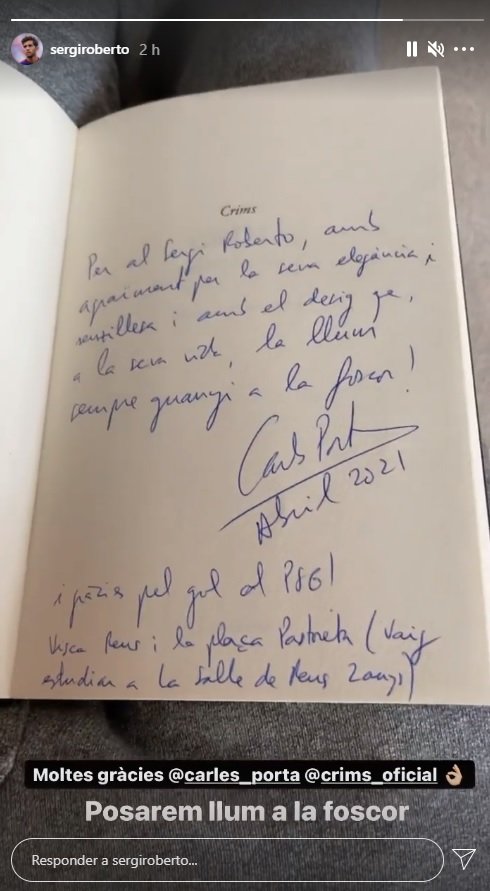 sergiroberto 2 h
Crims
Per al Sergi Roberto, amb
agraïment per la seva elegància i
senzillesa i amb el desig que,
a la seva vida, la llum
sempre guanyi a la foscor!
Carles Porta
Abril 2021
i gràcies pel gol al PSG!
Visca Reus i la plaça Pastoreta (Vaig
estudiar a La Salle de Reus 2 anys)
Moltes gràcies @carles_porta @crims_oficial 👌🏼
Posarem llum a la foscor
Responder a sergiroberto...